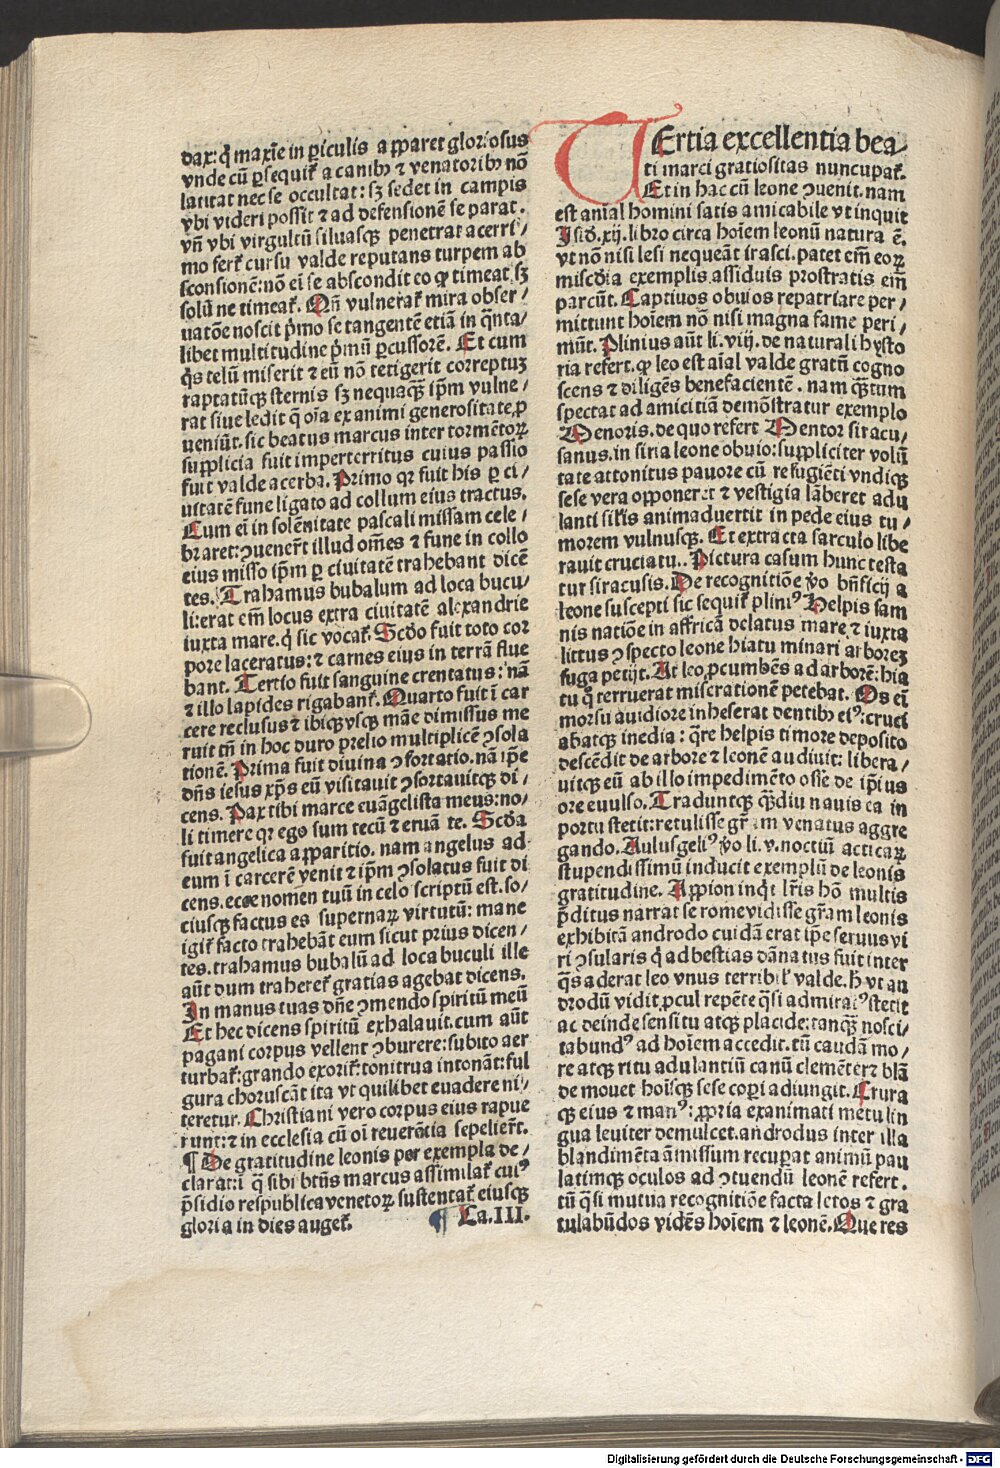 dax: q̃ maxīe in ꝑiculis apparet gloriosus
vnde cū ꝑsequit᷑ a canibꝫ ⁊ venatoribꝫ nō
latitat nec se occultat: sꝫ sedet in campis
vbi videri possit ⁊ ad defensionē se parat.
vñ vbi virgultū siluasqꝫ penetrat acerri/
mo fert᷑ cursu valde reputans turpem ab
sconsionē: nō ei se abscondit eo ꝙ timeat sꝫ
solū ne timeat᷑. Qñ vulnerat᷑ mira obser/
uatōe noscit pͥmo se tangentē etiā in q̄nta/
libet multitudine pͥmū ꝑcussorē. Et cum
qͥs telū miserit ⁊ eū nō tetigerit correptuꝫ
raptatūqꝫ sternis sꝫ nequaqꝫ̄ ip̄m vulne/
rat siue ledit q̄ oīa ex animi generositate ꝓ
ueniūt. sic beatus marcus inter tormētoꝝ
supplicia fuit imperterritus cuius passio
fuit valde acerba. Primo qꝛ fuit his ꝑ ci/
uitatē fune ligato ad collum eius tractus.
Cum ei in solēnitate pascali missam cele/
braret: ꝯuener̄t illud om̄es ⁊ fune in collo
eius misso ip̄m ꝑ ciuitatē trahebant dicē
tes. Trahamus bubalum ad loca bucu/
li: erat em̄ locus extra ciuitatē alexandrie
iuxta mare. q̄ sic vocat᷑. Scd̄o fuit toto cor
pore laceratus: ⁊ carnes eius in terrā flue
bant. Tertio fuit sanguine crentatus: nā
⁊ illo lapides rigabant᷑. Quarto fuit ī car
cere reclusus ⁊ ibiqꝫ vsqꝫ māe dimissus me
ruit tn̄ in hoc duro prelio multiplicē ꝯsola
tionē. Prima fuit diuina ꝯfortatio. nā ip̄e
dn̄s iesus xp̄s eū visitauit ꝯfortauitqꝫ di/
cens. Pax tibi marce euāgelista meus: no/
li timere qꝛ ego sum tecū ⁊ eruā te. Scd̄a
fuit angelica apparitio. nam angelus ad
eum ī carcerē venit ⁊ ip̄m ꝯsolatus fuit di
cens. ecce nomen tuū in celo scriptū est. so/
ciusqꝫ factus es supernaꝝ virtutū: mane
igit᷑ facto trahebāt eum sicut prius dicen/
tes. trahamus bubalū ad loca buculi ille
aūt dum traheret᷑ gratias agebat dicens.
In manus tuas dn̄e ꝯmendo spiritū meū
Et hec dicens spiritū exhalauit. cum aūt
pagani corpus vellent ꝯburere: subito aer
turbat᷑: grando exorit᷑: tonitrua intonāt: ful
gura choruscāt ita vt quilibet euadere ni/
teretur. Christiani vero corpus eius rapue
runt: ⁊ in ecclesia cū oī reuerētia sepelier̄t.
¶ De gratitudine leonis per exempla de/
clarat: ī q̄ sibi btūs marcus assimilat᷑ cuiꝰ
p̄sidio respublica venetoꝝ sustentat᷑ eiusqꝫ
gloria in dies auget᷑. ¶ Ca. III.
TErtia excellentia bea/
ti marci gratiositas nuncupat᷑.
Et in hac cū leone ꝯuenit. nam
est aīal homini satis amicabile vt inquit
Isid̄. xij. libro circa hoīem leonū natura ē.
vt nō nisi lesi nequeāt irasci. patet em̄ eoꝝ
misc̄dia exemplis assiduis prostratis em̄
parcūt. Captiuos obuios repatriare per/
mittunt hoīem nō nisi magna fame peri/
mūt. Plinius aūt li. viij. de naturali hysto
ria refert. ꝙ leo est aīal valde gratū cogno
scens ⁊ diligēs benefacientē. nam qꝫ̄tum
spectat ad amicitiā demōstratur exemplo
Menoris. de quo refert Mentor siracu/
sanus. in siria leone obuio: suppliciter volū
tate attonitus pauore cū refugiēti vndiqꝫ
sese vera opponeret ⁊ vestigia lāberet adu
lanti sil̄is animaduertit in pede eius tu/
morem vulnusqꝫ. Et extracta sarculo libe
rauit cruciatu.. Pictura casum hunc testa
tur siracusis. De recognitiōe v̄o bn̄ficij a
leone suscepti sic sequit᷑ pliniꝰ Helpis sam
nis natiōe in affricā delatus mare ⁊ iuxta
littus ꝯspecto leone hiatu minari arboreꝫ
fuga petijt. At leo ꝓcumbēs ad arborē: hia
tu q̄ terruerat miserationē petebat. Os ei
morsu auidiore inheserat dentibꝫ eiꝰ: cruci
abatqꝫ inedia: q̄re helpis timore deposito
descēdit de arbore ⁊ leonē audiuit: libera/
uitqꝫ eū ab illo impedimēto osse de ip̄ius
ore euulso. Traduntqꝫ qͣ̄diu nauis ea in
portu stetit: retulisse gr̄am venatus aggre
gando. Aulusgeliꝰ v̄o li. v. noctiū acticaꝝ
stupendissimū inducit exemplū de leonis
gratitudine. Appion inq̄t lr̄is hō multis
p̄ditus narrat se rome vidisse gr̄am leonis
exhibitā androdo cuidā erat ip̄e seruus vi
ri ꝯsularis q̄ ad bestias dānatus fuit inter
q̄s aderat leo vnus terribil᷑ valde. h̄ vt an
drodū vidit ꝓcul repēte q̄si admiratꝰ stetit
ac deinde sensitu atqꝫ placide: tanqꝫ̄ nosci/
tabundꝰ ad hoīem accedit. tū caudā mo/
re atqꝫ ritu adulantiū canū clemēter ⁊ blā
de mouet hoīsqꝫ sese coꝑi adiungit. Crura
qꝫ eius ⁊ manꝰ: ꝓpria exanimati metu lin
gua leuiter demulcet. androdus inter illa
blandimēta amissum recuꝑat animū pau
latimqꝫ oculos ad ꝯtuendū leonē refert.
tū q̄si mutua recognitiōe facta letos ⁊ gra
tulabūdos vidēs hoīem ⁊ leonē. Que res
Digitalisierung gefördert durch die Deutsche Forschungsgemeinschaft - DFG